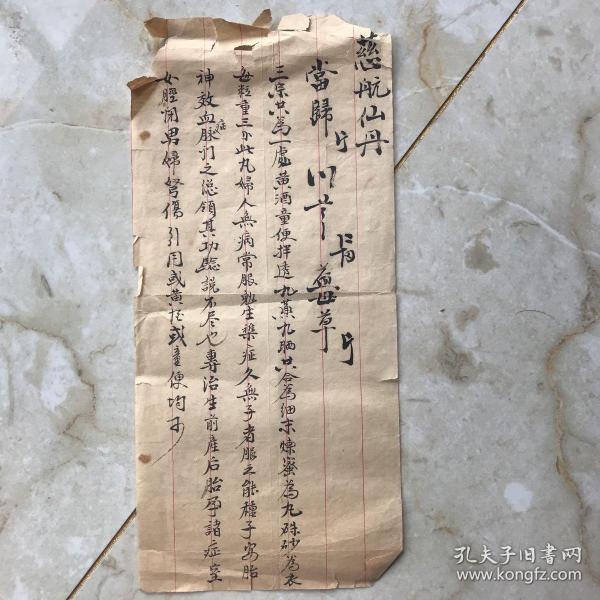 慈航仙丹
當歸 川芎 益草
三宗共為一處黃酒童便拌透九蒸九晒共合為細末煉蜜為丸硃砂為衣
每粒重三 此丸婦人無病常服 生 症久無子者服之能種子安胎
神效血脉 症 之總領其功驗說不尽也專治生前產后胎孕諸症室
女經閉男婦努傷引用或黃酒或童便均可
孔夫子旧書网
www.kongfz.com